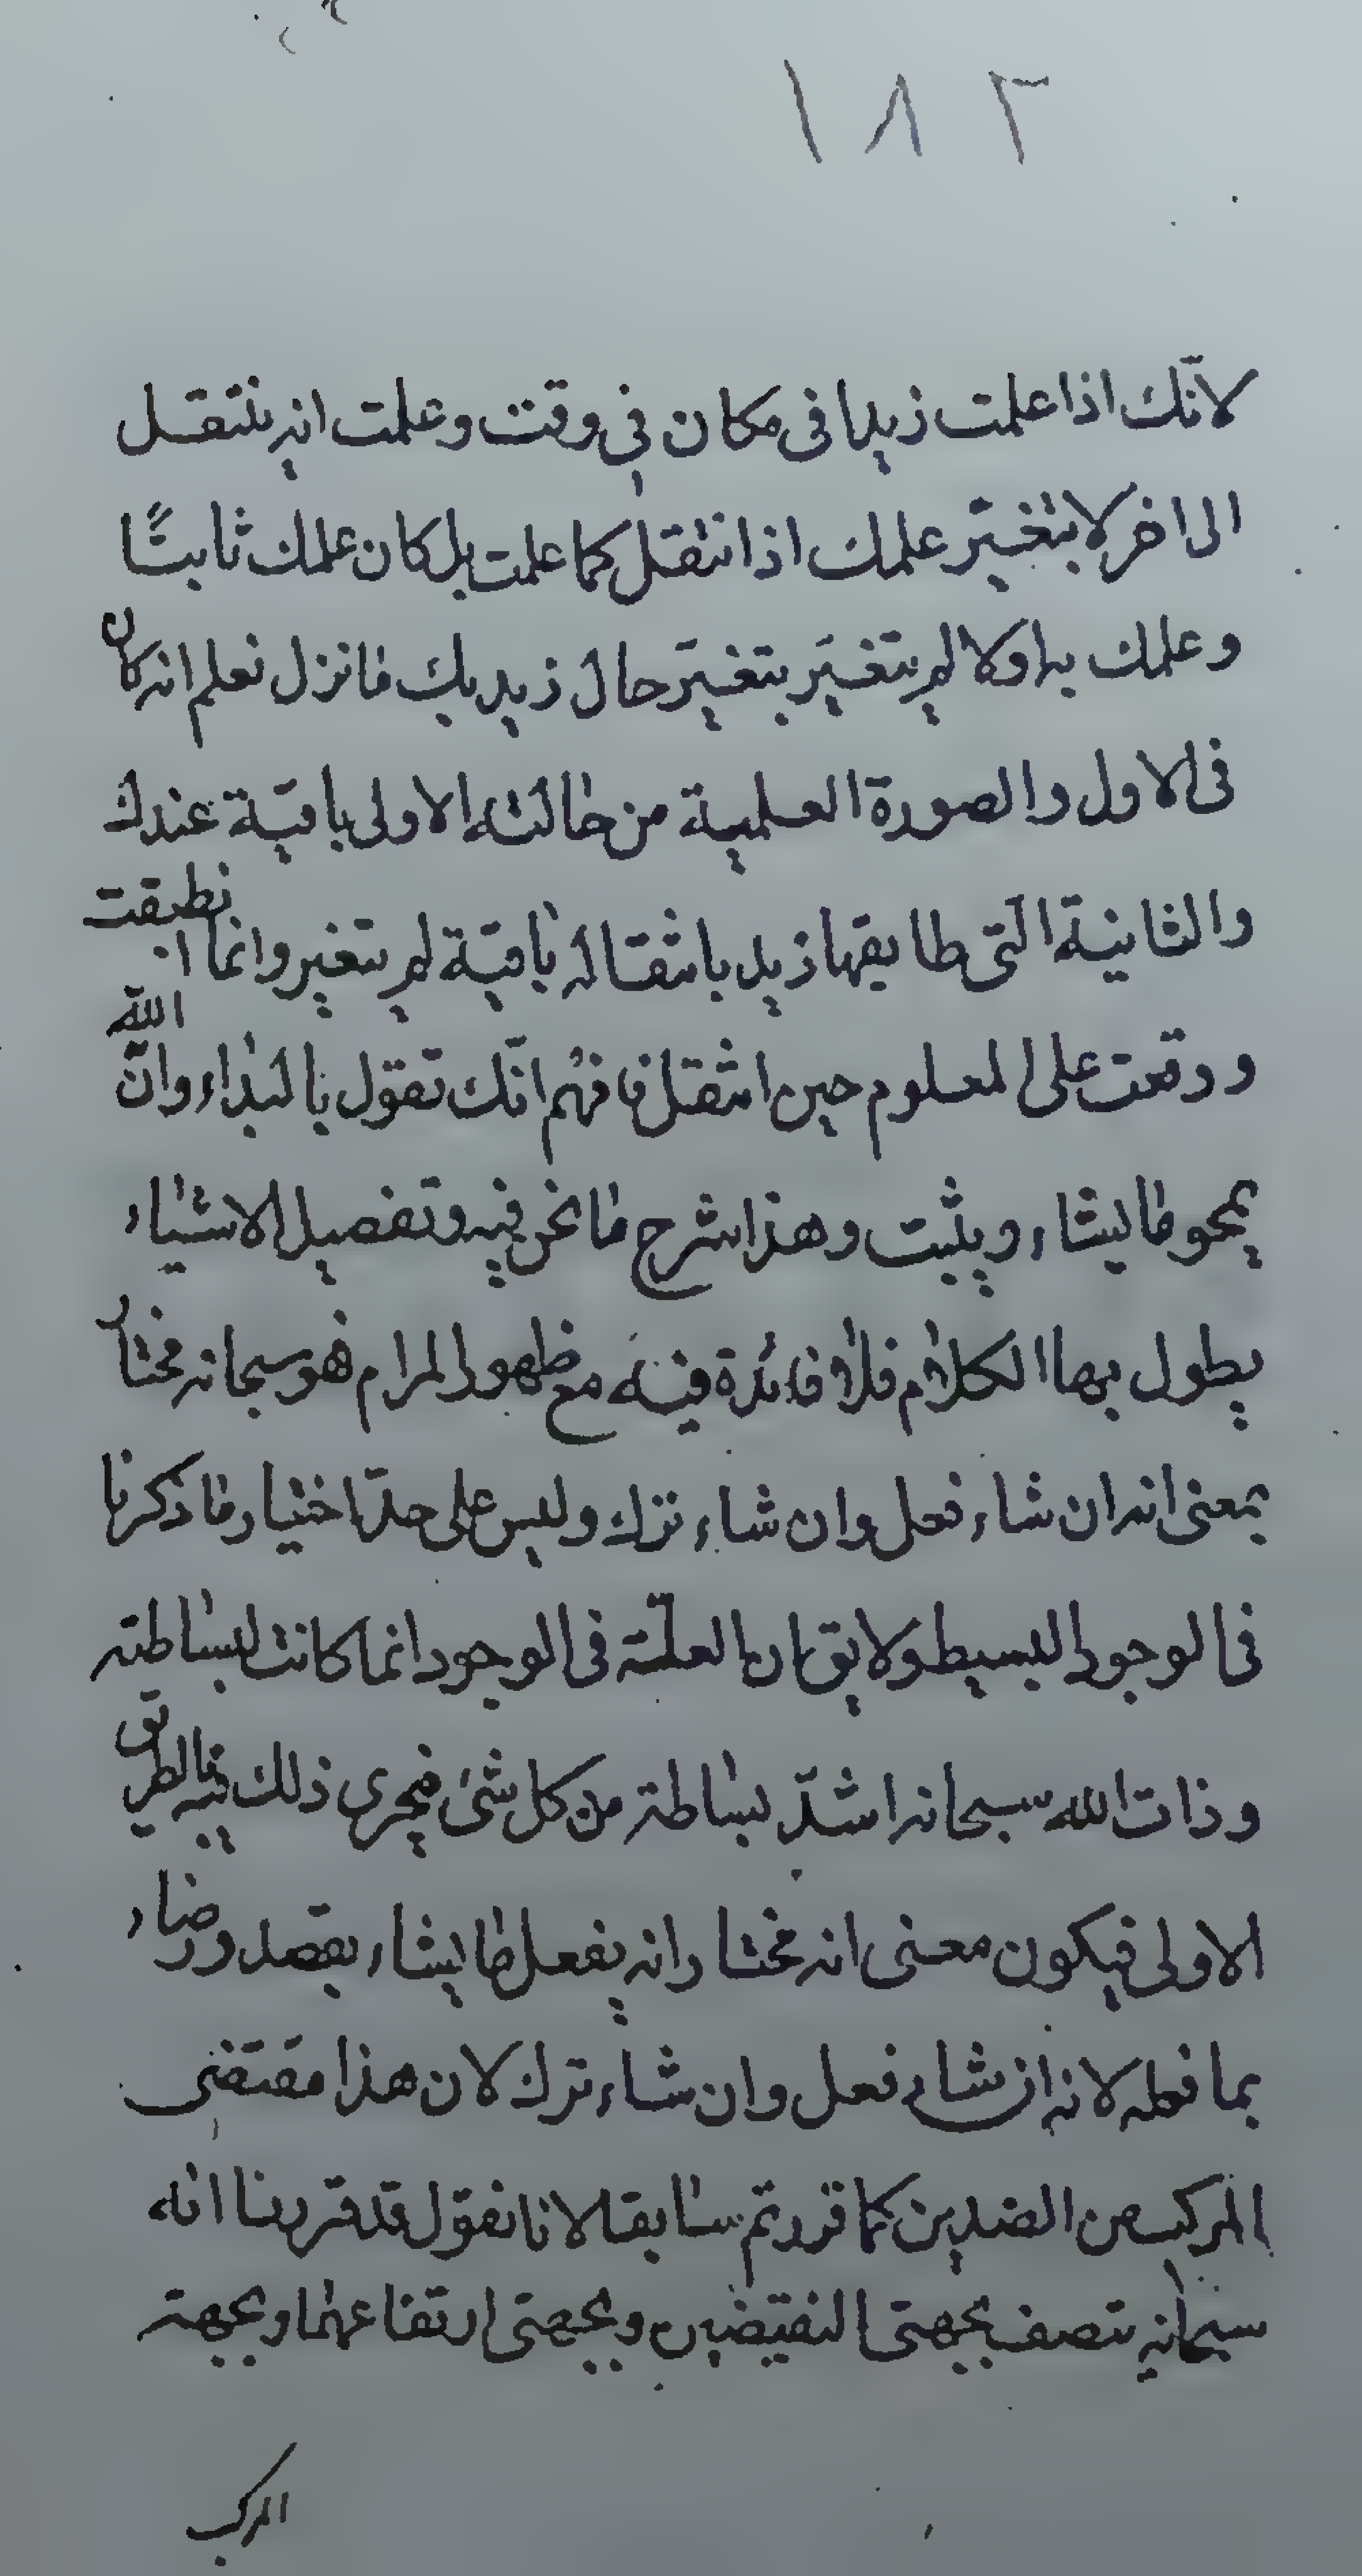 ١٨٢
لانّك اذا علمت زيدا فى مكان فى وقت وعلمت انه ينتقل
الى اخر لا يتغيّر علمك اذا انتقل كما علمت بل كان علمك ثابتًا
وعلمك به اولا لم يتغيّر بتغيّر حال زيد بك ما نزل نعلم انه كان
فى الاول والصورة العلمية من حالته الاولى باقيّة عندك
والثانيّة الّتى طابقها زيد بانتقاله باقيّة لم يتغير وانما انطبقت
ووقعت على المعلوم حين انتقل فافهم انّك تقول بالبداء وانّ الله
يمحو ما يشاء ويثبت وهذا شرح ما نحن فيه وتفصيل الاشياء
يطول بها الكلام فلا فائدة فيه مع ظهور المرام فهو سبحانه مختار
بمعنى انه ان شاء فعل وان شاء ترك وليس على حدّ اختيار ما ذكرنا
فى الوجود البسيط ولا يق ان العلّة فى الوجود انما كانت لبساطته
وذات الله سبحانه اشدّ بساطة من كل شئ فيجرى ذلك فيه بالطريق
الاولى فيكون معنى انه مختار انه يفعل ما يشاء بقصد ورضاء
بما فعله لا انه ان شاء فعل وان شاء ترك لان هذا مقتضى
المركب من الضدين كما قررتم سابقا لانا نقول قد قررنا انه
سبحانه يتصف بجهتى النقيضين وبجهتى ارتفاعهما وبجهة
المركب